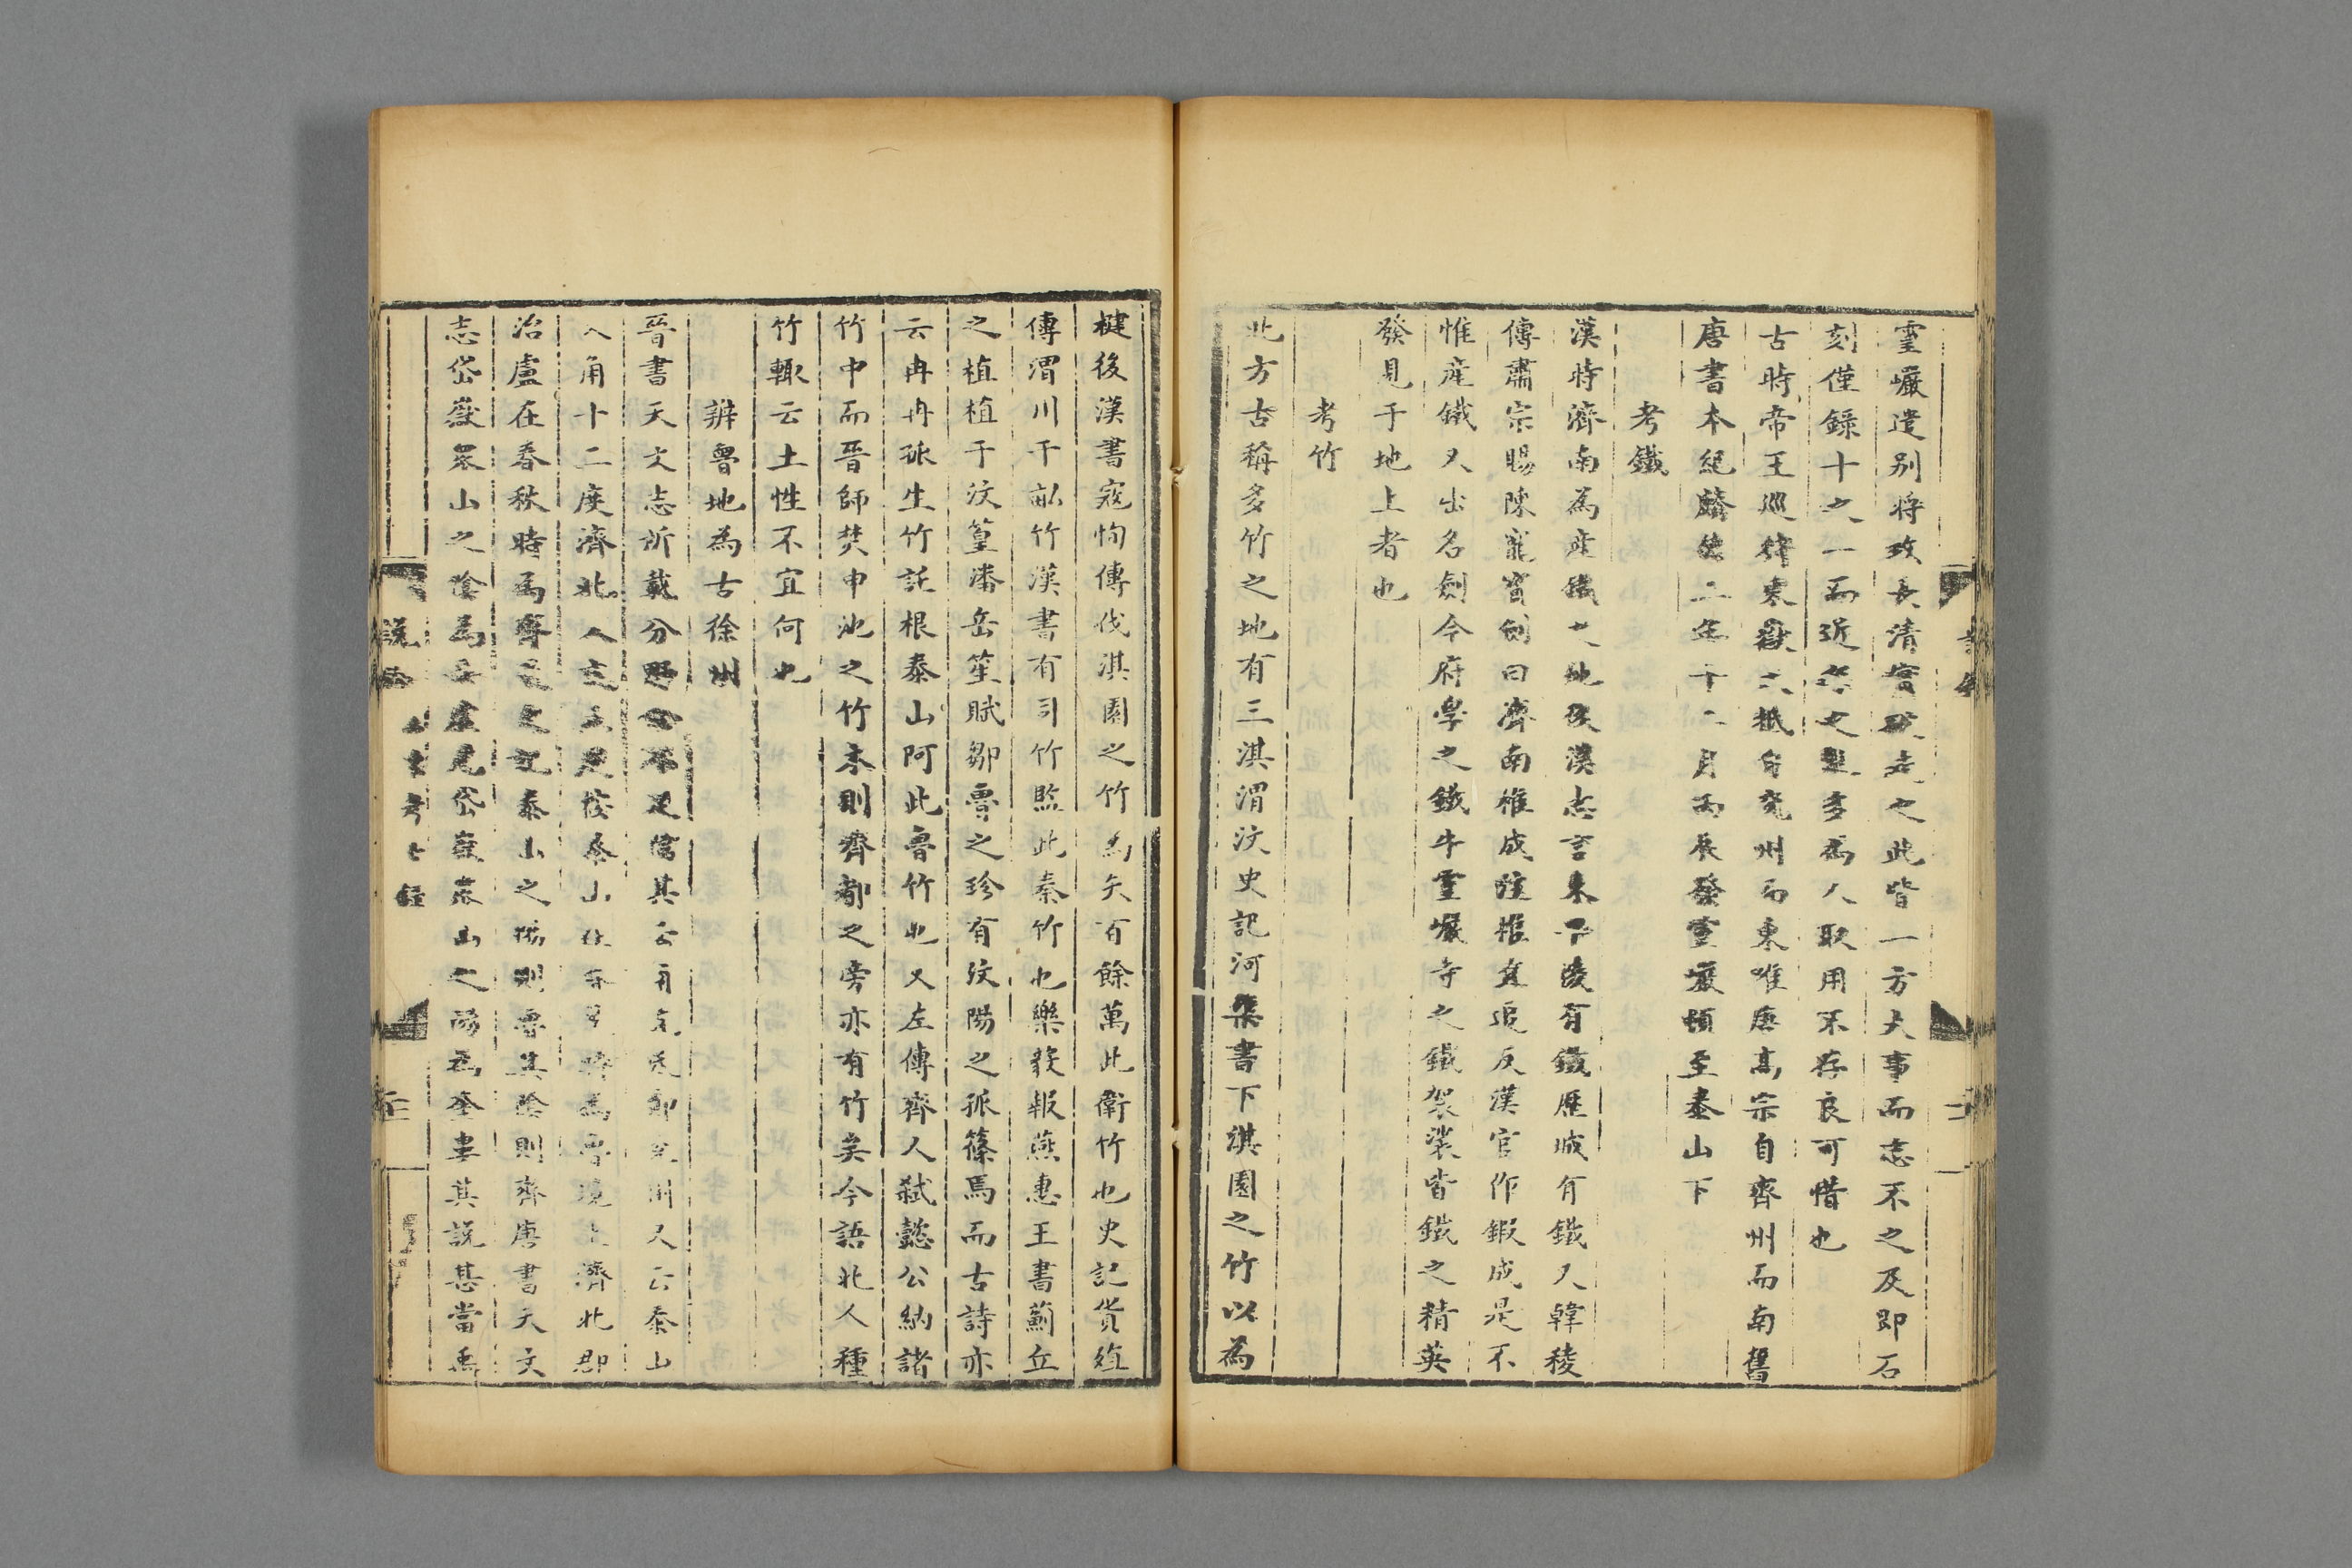 靈巖遣别將攻長清實破走之此皆一方大事而志不之及即石
刻僅錄十之一而近年之黑多為人取用不存良可惜也
古時帝王巡狩東嶽六抵自兗州而東唯唐髙宗自齊州而南舊
唐書本紀麟徳二年十二月丙辰發靈巖頓至泰山下
考鐵
漢時濟南為産鐵之地後漢志言東平陵有鐵歴城有鐵又韓稜
傳肅宗賜陳寵寶劍曰濟南椎成注椎直追反漢官作鍜成是不
惟産鐵又出名劍今府學之鐵牛靈巖寺之鐵袈裟皆鐵之精英
發見于地上者也
考竹
北方古稱多竹之地有三淇渭汶史記河渠書下淇園之竹以為
楗後漢書寇恂傳伐淇園之竹為矢百餘萬此衛竹也史記貨殖
傳渭川千畝竹漢書有司竹監此秦竹也樂毅報燕惠王書薊丘
之植植于汶篁潘岳笙賦鄒魯之珍有汶陽之孤篠焉而古詩亦
云冉冉孤生竹託根泰山阿此魯竹也又左傳齊人弑懿公納諸
竹中而晋師焚申池之竹木則齊都之旁亦有竹矣今語北人種
竹輙云土性不宜何也
辨魯地為古徐州
晉書天文志所載分野 不足信其云角亢氐鄭兗州又云泰山
入角十二度濟北入亢五度按泰山在 為魯境之濟北郡
治盧在春秋時為齊 之記泰山之陽則魯其隂則齊唐書天文
志岱嶽衆山之隂為 虛危岱嶽衆山之陽為奎婁其説甚當禹